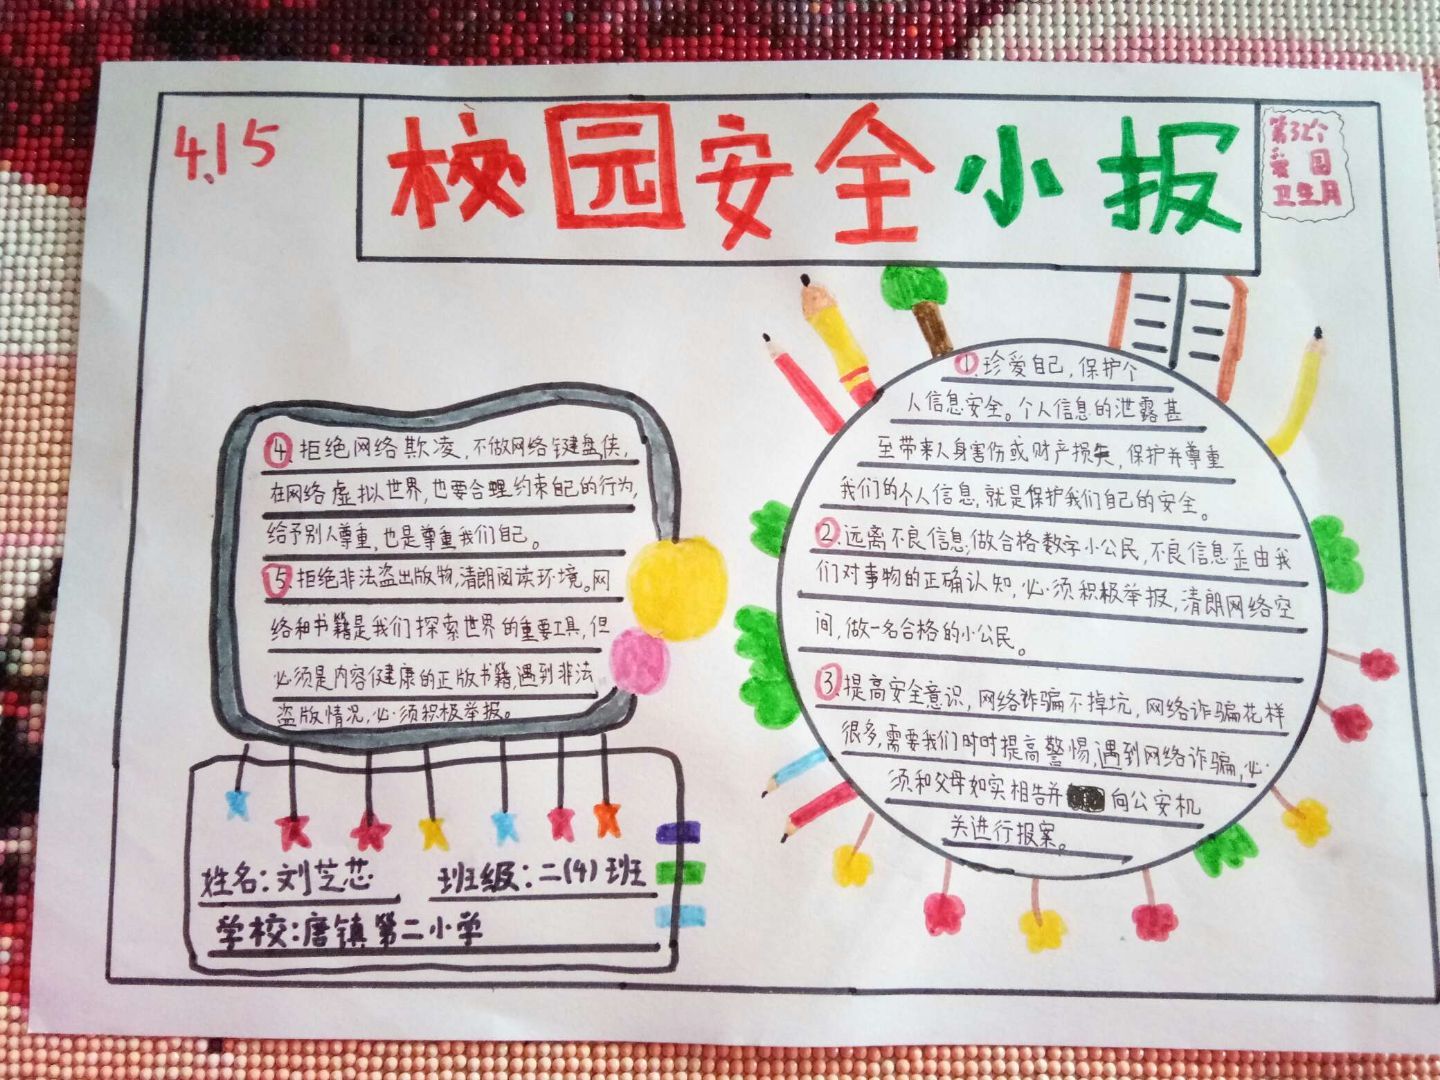 4.15
校园安全小报
第32个
爱国
卫生月
①珍爱自己,保护个
人信息安全。个人信息的泄露甚
至带来人身害伤或财产损失,保护并尊重
我们的个人信息,就是保护我们自己的安全。
②远离不良信息,做合格数字小公民,不良信息歪曲我
们对事物的正确认知,必须积极举报,清朗网络空
间,做一名合格的小公民。
③提高安全意识,网络诈骗不掉坑,网络诈骗花样
很多,需要我们时时提高警惕,遇到网络诈骗,必
须和父母如实相告并向公安机
关进行报案。
④拒绝网络欺凌,不做网络键盘侠,
在网络虚拟世界,也要合理约束自己的行为,
给予别人尊重,也是尊重我们自己。
⑤拒绝非法盗出版物,清朗阅读环境。网
络和书籍是我们探索世界的重要工具,但
必须是内容健康的正版书籍,遇到非法
盗版情况,必须积极举报。
姓名:刘芝芯 班级:二(4)班
学校:唐镇第二小学